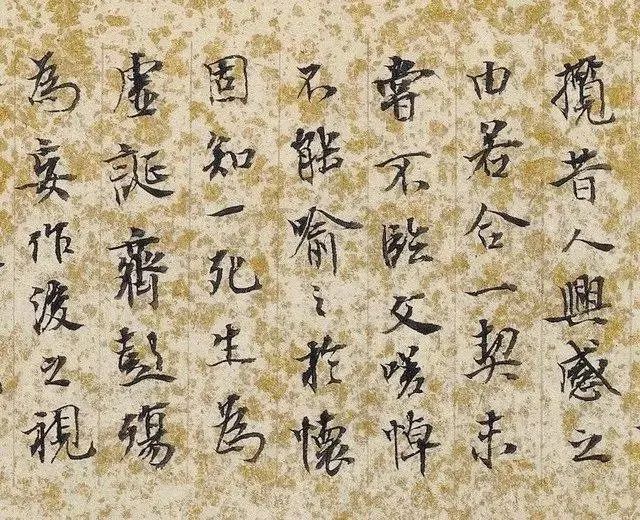 攬昔人興感之
由若合一契未
嘗不臨文嗟悼
不能喻之於懷
固知一死生為
虛誕齊彭殤
為妄作後之視